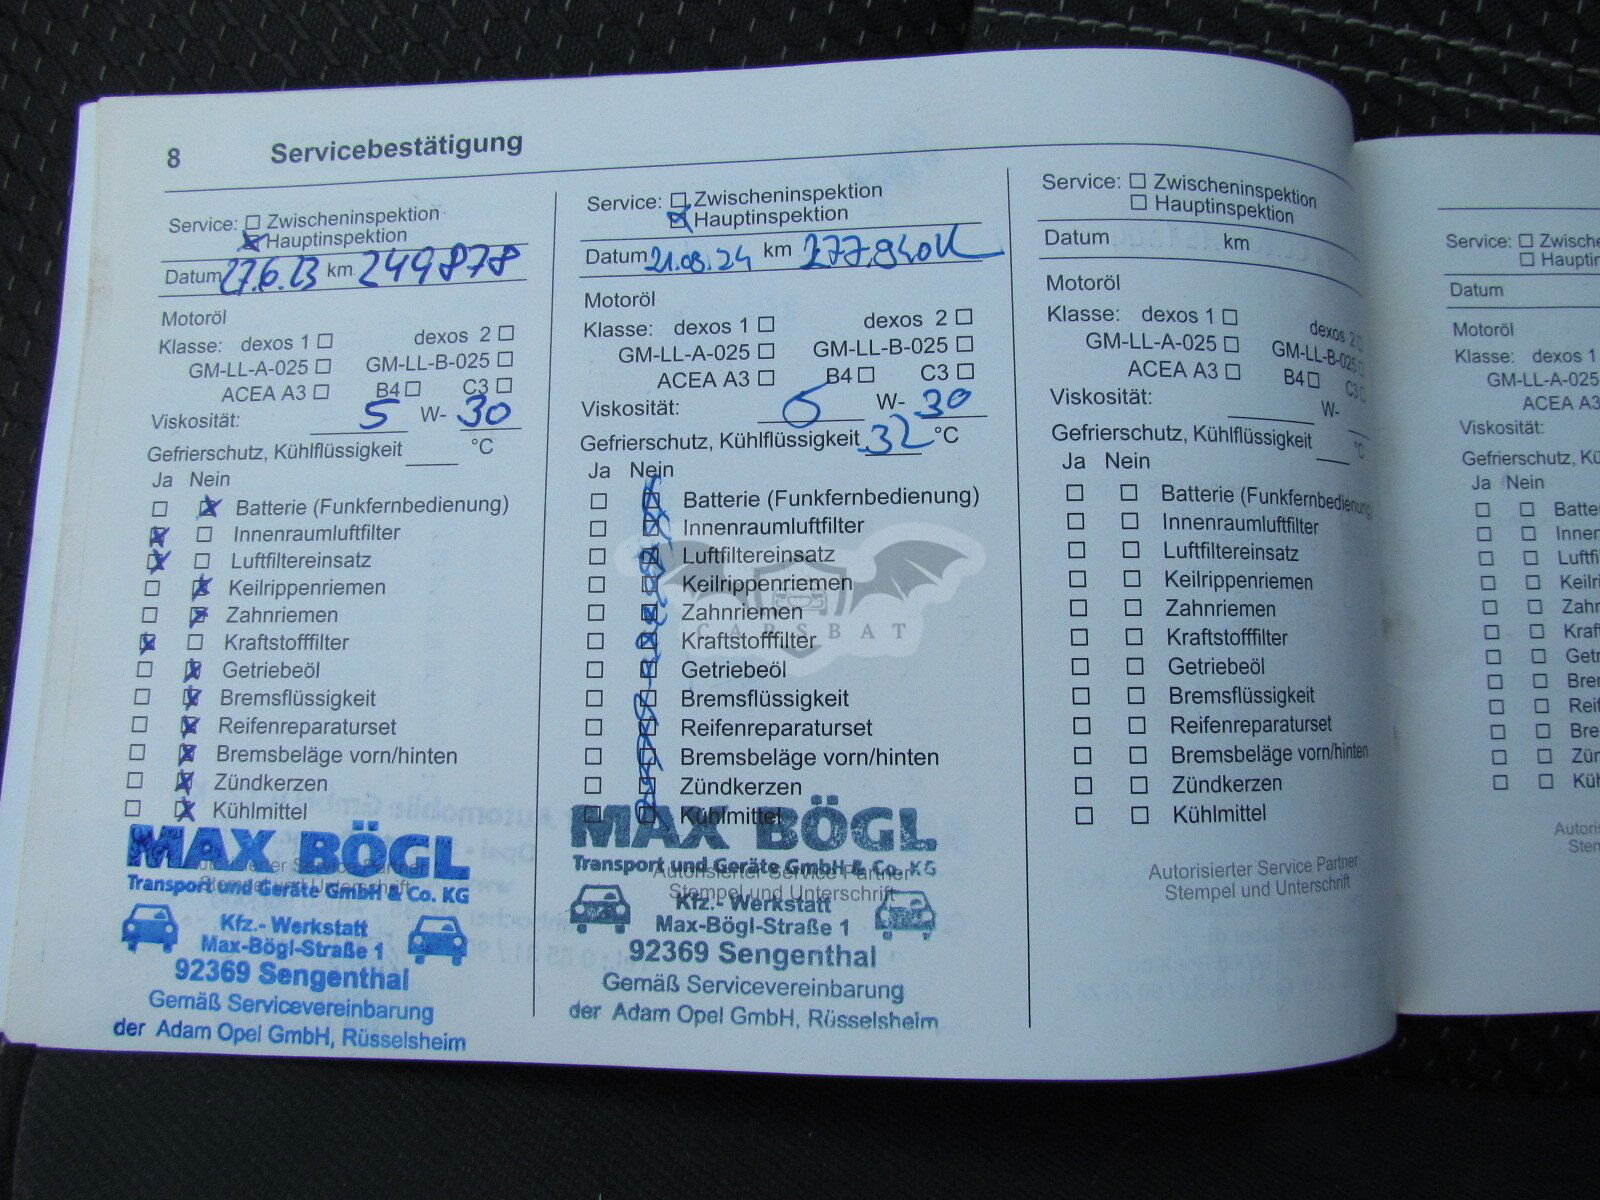 8 Servicebestätigung
Service: Zwischeninspektion
Hauptinspektion
Datum 27.6.23 km 249878
Motoröl
Klasse: dexos 1 dexos 2
GM-LL-A-025 GM-LL-B-025
ACEA A3 B4 C3
Viskosität: 5 W- 30
Gefrierschutz, Kühlflüssigkeit °C
Ja Nein
Batterie (Funkfernbedienung)
Innenraumluftfilter
Luftfiltereinsatz
Keilrippenriemen
Zahnriemen
Kraftstofffilter
Getriebeöl
Bremsflüssigkeit
Reifenreparaturset
Bremsbeläge vorn/hinten
Zündkerzen
Kühlmittel
MAX BÖGL
Autorisierter Service Partner
Transport und Geräte GmbH & Co. KG
Stempel und Unterschrift
Kfz.- Werkstatt
Max-Bögl-Straße 1
92369 Sengenthal
Gemäß Servicevereinbarung
der Adam Opel GmbH, Rüsselsheim
Service: Zwischeninspektion
Hauptinspektion
Datum 21.03.24 km 277.940
Motoröl
Klasse: dexos 1 dexos 2
GM-LL-A-025 GM-LL-B-025
ACEA A3 B4 C3
Viskosität: W- 30
Gefrierschutz, Kühlflüssigkeit 32 °C
Ja Nein
Batterie (Funkfernbedienung)
Innenraumluftfilter
Luftfiltereinsatz
Keilrippenriemen
Zahnriemen
Kraftstofffilter
Getriebeöl
Bremsflüssigkeit
Reifenreparaturset
Bremsbeläge vorn/hinten
Zündkerzen
Kühlmittel
MAX BÖGL
Transport und Geräte GmbH & Co. KG
Autorisierter Service Partner
Stempel und Unterschrift
Kfz.- Werkstatt
Max-Bögl-Straße 1
92369 Sengenthal
Gemäß Servicevereinbarung
der Adam Opel GmbH, Rüsselsheim
CARSBAT
Service: Zwischeninspektion
Hauptinspektion
Datum km
Motoröl
Klasse: dexos 1 dexos 2
GM-LL-A-025 GM-LL-B-025
ACEA A3 B4 C3
Viskosität: W-
Gefrierschutz, Kühlflüssigkeit °C
Ja Nein
Batterie (Funkfernbedienung)
Innenraumluftfilter
Luftfiltereinsatz
Keilrippenriemen
Zahnriemen
Kraftstofffilter
Getriebeöl
Bremsflüssigkeit
Reifenreparaturset
Bremsbeläge vorn/hinten
Zündkerzen
Kühlmittel
Autorisierter Service Partner
Stempel und Unterschrift
Service: Zwische
Hauptin
Datum
Motoröl
Klasse: dexos 1
GM-LL-A-025
ACEA A3
Viskosität:
Gefrierschutz, Kü
Ja Nein
Batte
Innen
Luftfi
Keilri
Zahn
Kraf
Getr
Bre
Reif
Bre
Zün
Kühl
Autoris
Stem